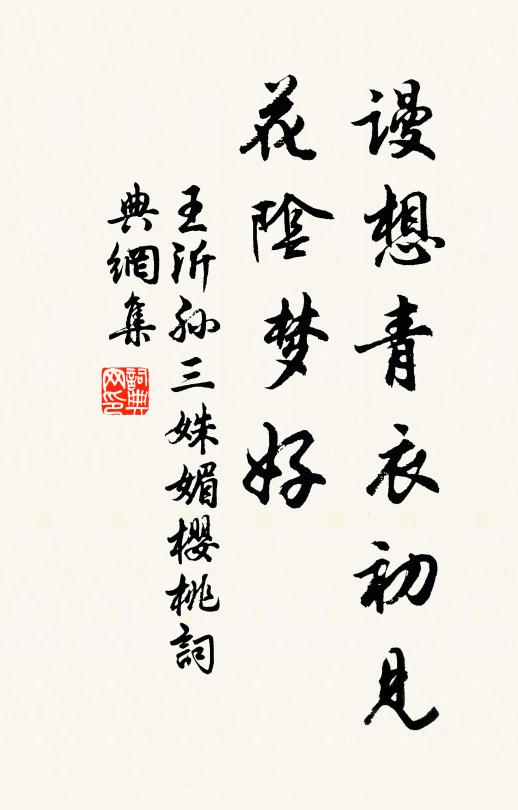 谩想青衣初见
花阴梦好
王沂孙三姝媚樱桃詞
典網集
詞典网印